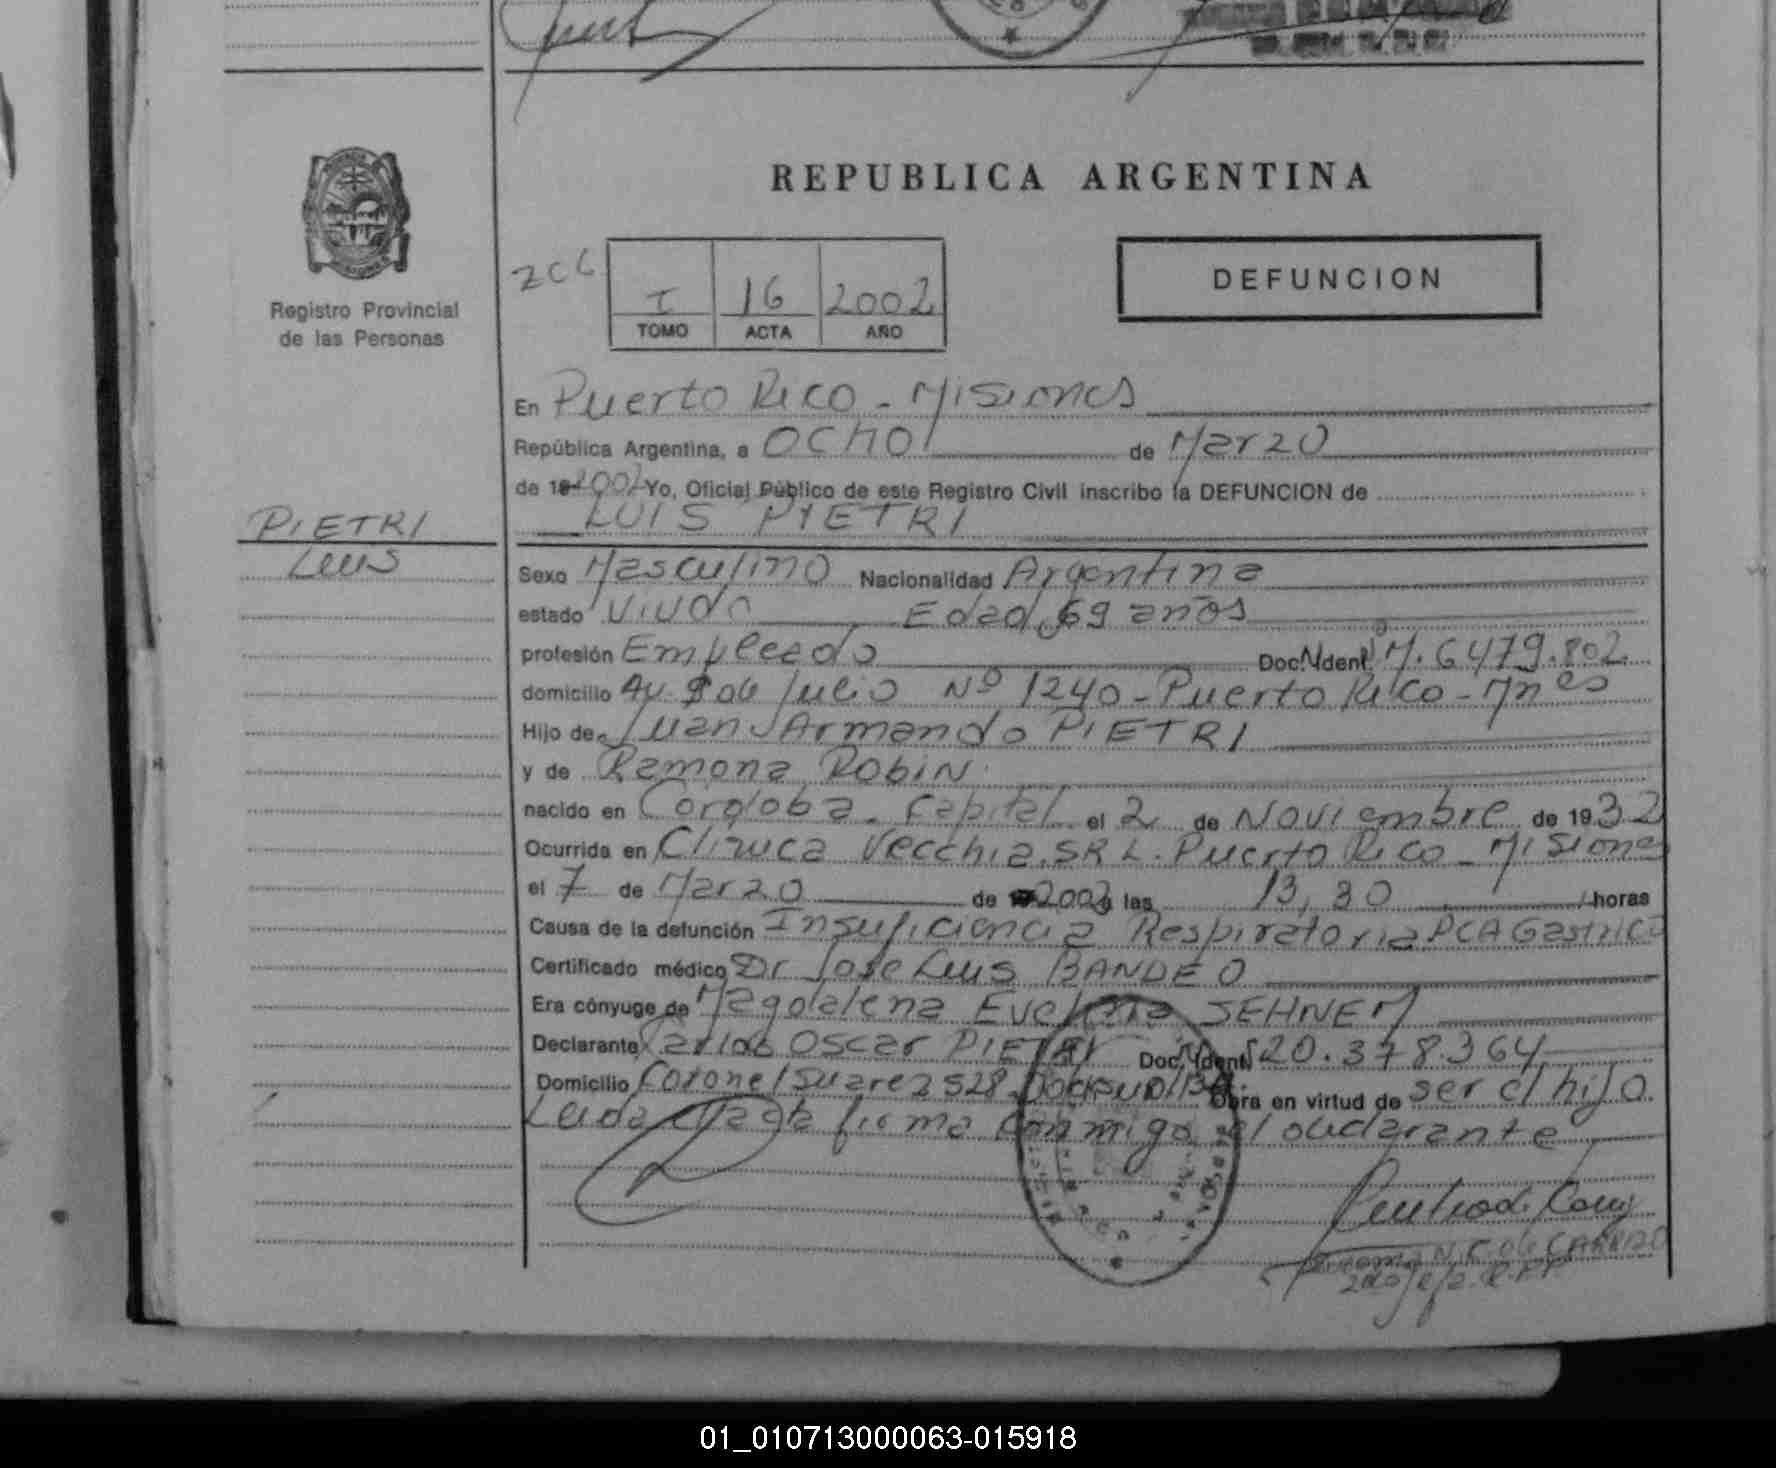 REPUBLICA ARGENTINA
DEFUNCION
Registro Provincial
de las Personas
I 16 2002
TOMO ACTA AÑO
En Puerto Rico - Misiones
República Argentina, a OCHO de Marzo
de 19 2002 Yo, Oficial Público de este Registro Civil inscribo la DEFUNCION de
LUIS PIETRI
PIETRI
Luis
Sexo Masculino Nacionalidad Argentina
estado Viudo Edad 69 años
profesión Empleado Doc. Ident. M. 6479.802
domicilio Av. 9 de Julio Nº 1240 - Puerto Rico - Mnes
Hijo de Juan Armando PIETRI
y de Ramona ROBIN
nacido en Córdoba - Capital el 2 de Noviembre de 1932
Ocurrida en Clinica Vecchia SRL. Puerto Rico - Misiones
el 7 de Marzo de 2002 a las 13,30 horas
Causa de la defunción Insuficiencia Respiratoria PCA Gastrico
Certificado médico Dr José Luis BANDEO
Era cónyuge de Magdalena Evelina SEHNEM
Declarante Carlos Oscar PIETRI Doc. Ident. 20.378.364
Domicilio Coronel Suarez 528 Docksud Obra en virtud de ser el hijo
Leida el acta firma conmigo el declarante
01_010713000063-015918